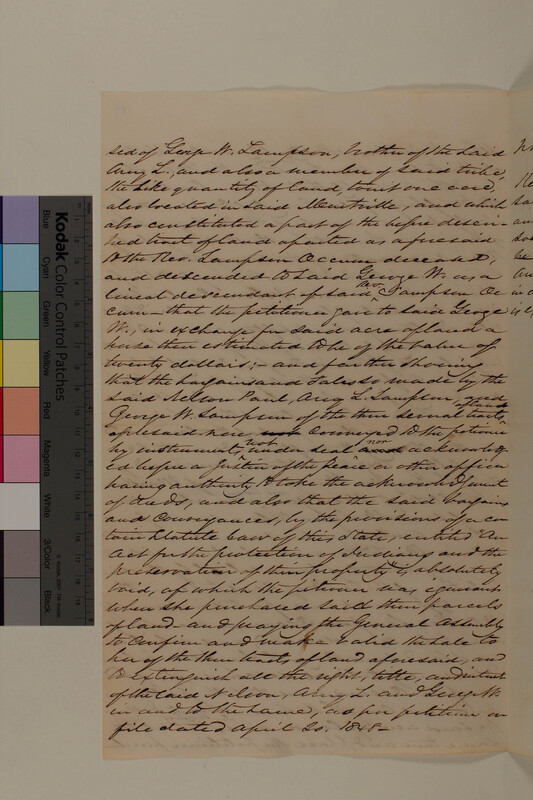 sed of George W. Lampson, brother of the said
Amy L. and also a member of said tribe,
the like quantity of land, to wit one acre,
also located in said Montville, and which
also constituted a part of the before descri-
bed tract of land aparted as aforesaid
to the Rev. Sampson Occum deceased,
and descended to said George W. as a
lineal descendant of said Rev. Sampson Oc
cum — that the petitioner gave to said George
W., in exchange for said acre of land a
horse then estimated to be of the value of
twenty dollars; — and further showing
that the bargains and sales so made by the
said Nelson Paul, Amy L. Lampson, and
George W. Lampson of the three several tracts of land
aforesaid were conveyed to the petitioner
by instruments, not under seal nor acknowledg
ed before a Justice of the Peace or other officer
having authority to take the acknowledgment
of deeds, and also that the said bargains
and conveyances, by the provisions of a cer
tain Statute Law of this State, entitled "An
Act for the protection of Indians and the
preservation of their property" is absolutely
void, of which the petitioner was ignorant
when she purchased said three parcels
of land — and praying the General Assembly
to confirm and make valid the sale to
her of the three tracts of land aforesaid, and
to extinguish all the right, title, and interest
of the said Nelson, Amy L. and George W.
in and to the same, as per petition on
file dated April 20. 1848 —
Kodak Color Control Patches
Blue
Cyan
Green
Yellow
Red
Magenta
White
3/Color
Black